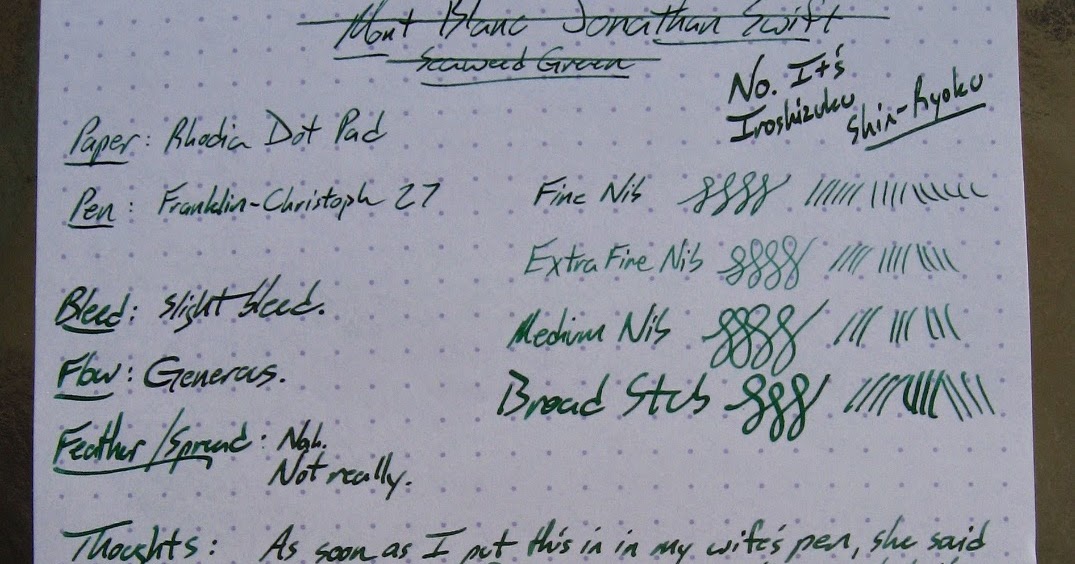 Mont Blanc Jonathan Swift
Seaweed Green
No. It's
Iroshizuku Shin-Ryoku
Paper: Rhodia Dot Pad
Pen: Franklin-Christoph 27
Fine Nib
Extra Fine Nib
Medium Nib
Broad Stub
Bleed: slight bleed.
Flow: Generous.
Feather/Spread: Nah.
Not really.
Thoughts: As soon as I put this in in my wife's pen, she said